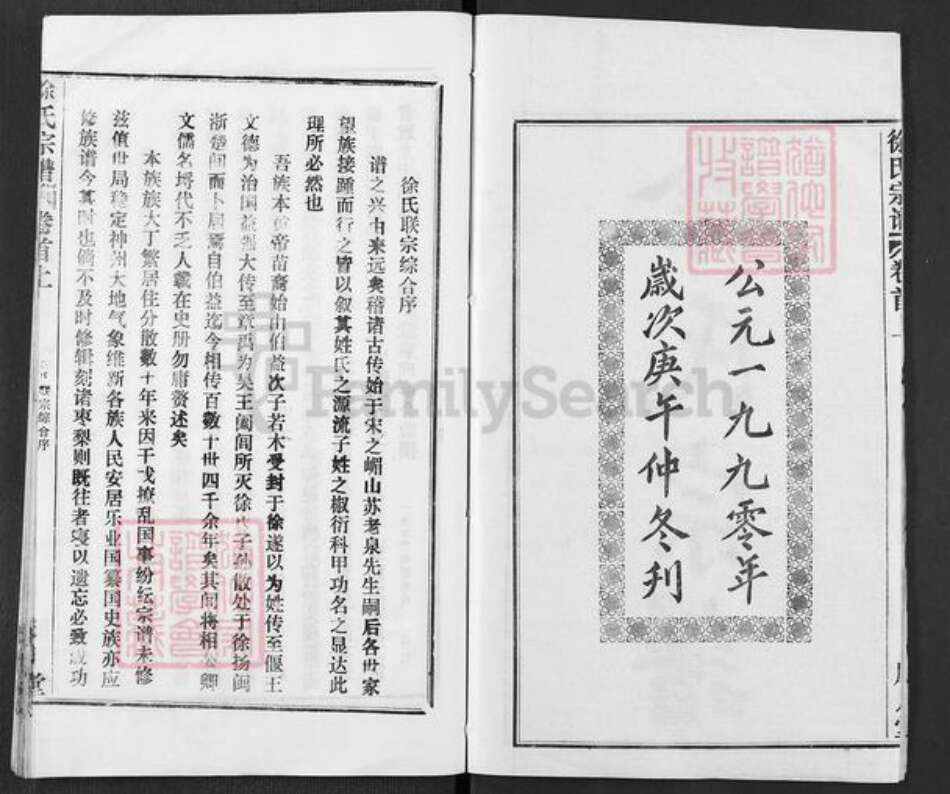 徐氏宗谱
卷首
公元一九九零年
歲次庚午仲冬刊
徐氏联宗综合序
谱之兴由来远矣稽诸古传始于宋之嵋山苏老泉先生嗣后各世家
望族接踵而行之皆以叙其姓氏之源流子姓之椒衍科甲功名之显达此
理所必然也
吾族本黄帝苗裔始由伯益次子若木受封于徐遂以为姓传至偃王
文德为治国益大传至章禹为吴王阖闾所灭徐子孙散处于徐扬闽
浙楚间而卜居焉自伯益迄今相传百数十世四千余年矣其间将相公卿
文儒名埓代不乏人载在史册勿庸赘述矣
本族族大丁繁居住分散数十年来因干戈撩乱国事纷纭宗谱未修
兹值世局稳定神州大地气象维新各族人民安居乐业国纂国史族亦应
修族谱今其时也倘不及时修辑刻诸枣梨则既往者寝以遗忘必致成功
徐氏宗譜
卷首上
联宗综合序
堂
FamilySearch